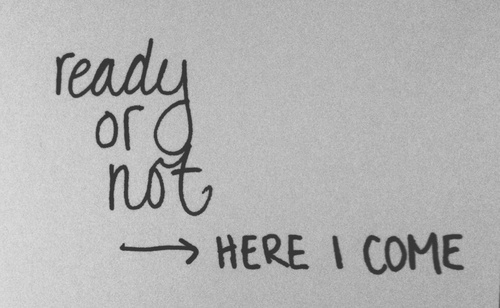 ready
or
not
→ HERE I COME